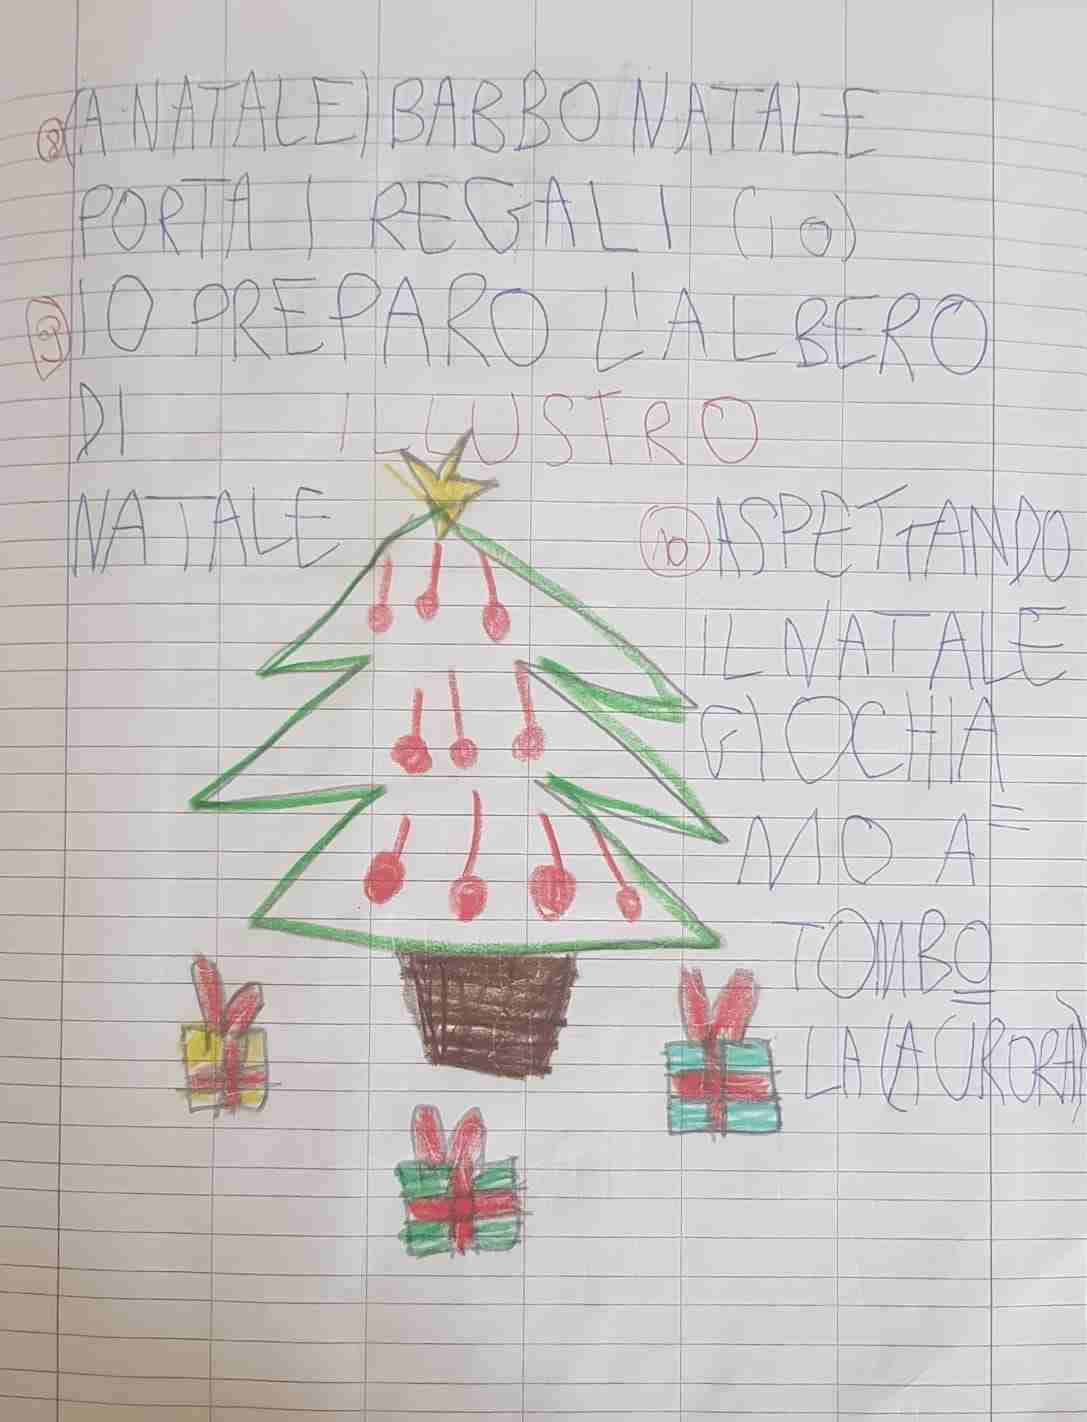 8 (A NATALE) BABBO NATALE
PORTA I REGALI (IO)
9 IO PREPARO L'ALBERO
DI ILLUSTRO
NATALE
10 ASPETTANDO
IL NATALE
GIOCHIA=
MO A
TOMBO=
LA (AURORA)